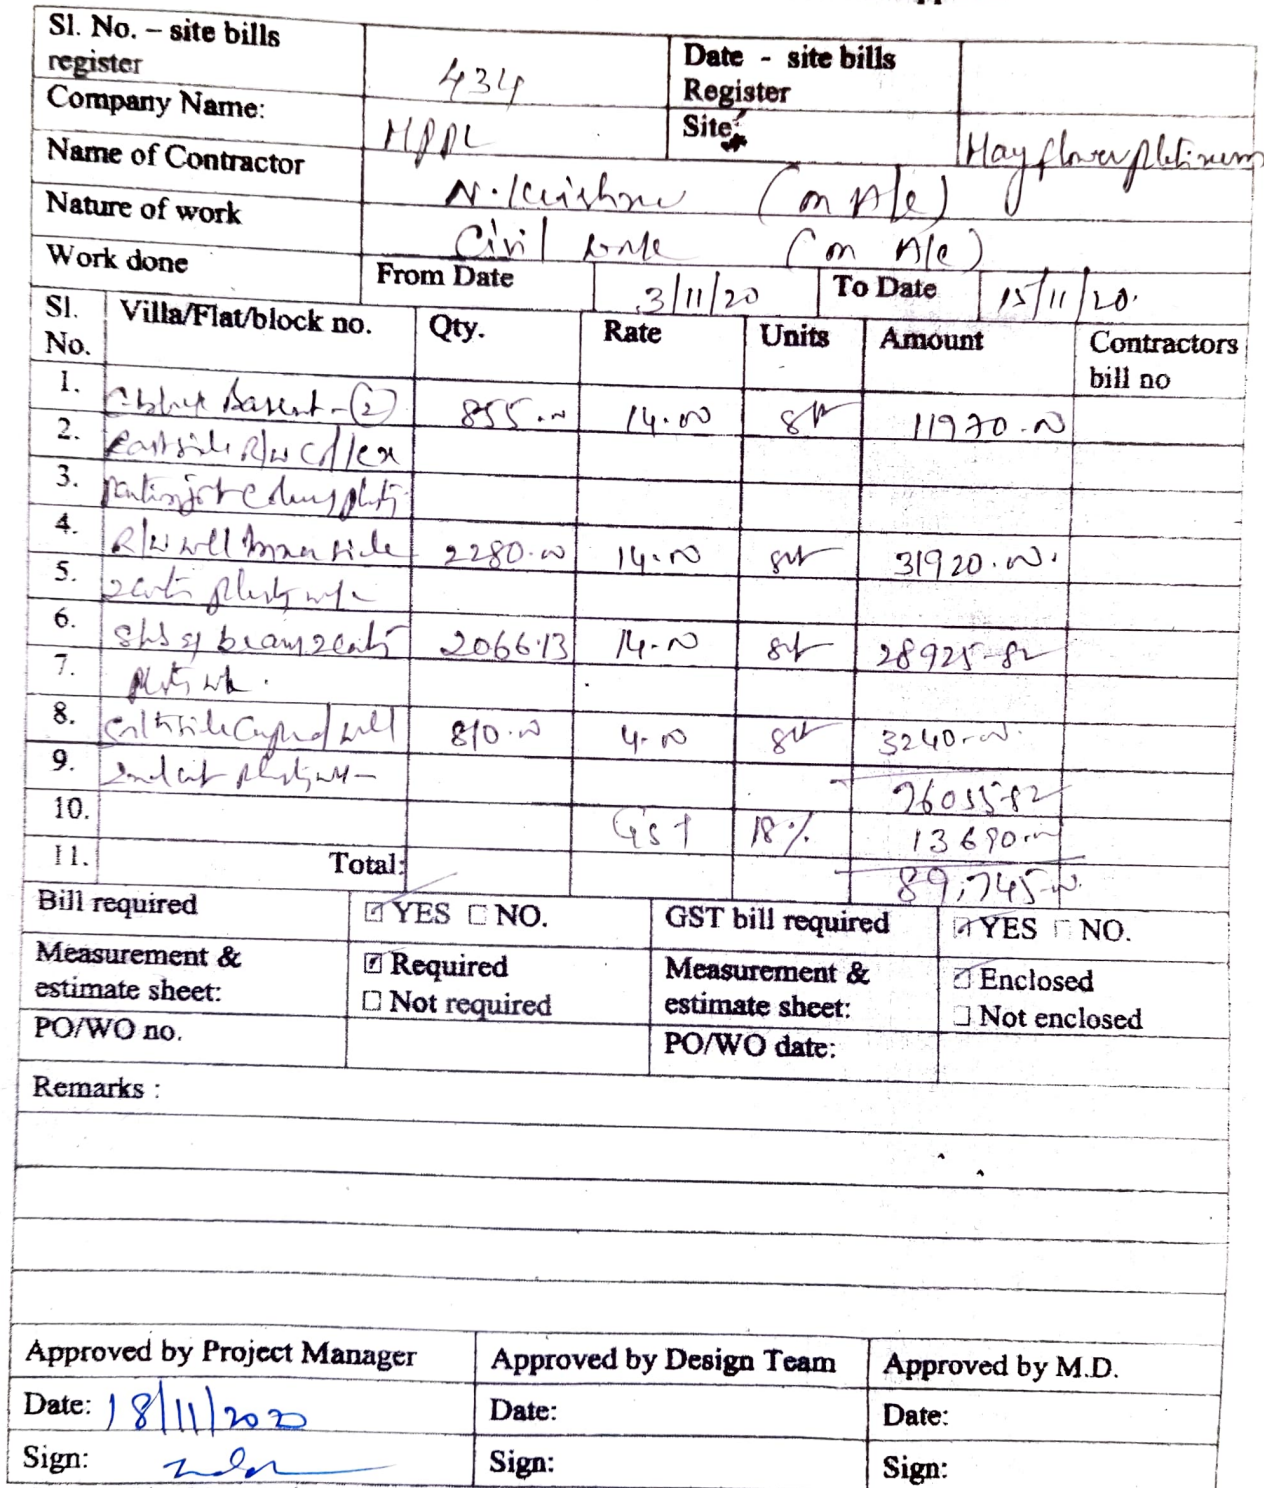 Sl. No. – site bills register 434 Date - site bills Register
Company Name: Site: Mayflower platinum
Name of Contractor N. Krishna (on A/c)
Nature of work Civil work (on A/c)
Work done From Date 3/11/20 To Date 15/11/20.
Sl. No. Villa/Flat/block no. Qty. Rate Units Amount Contractors bill no
1. 855.00 14.00 sft 11970.00
2.
3.
4. R/w wall inner side 2280.00 14.00 sft 31920.00.
5.
6. 2066.13 14.00 sft 28925-82
7.
8. wall 810.00 4.00 sft 3240.00.
9. 76055-82
10. GST 18% 13690.00
11. Total: 89,745-00.
Bill required ☑ YES ☐ NO. GST bill required ☑ YES ☐ NO.
Measurement & estimate sheet: ☑ Required ☐ Not required Measurement & estimate sheet: ☑ Enclosed ☐ Not enclosed
PO/WO no. PO/WO date:
Remarks :
Approved by Project Manager Approved by Design Team Approved by M.D.
Date: 18/11/2020 Date: Date:
Sign: Sign: Sign: